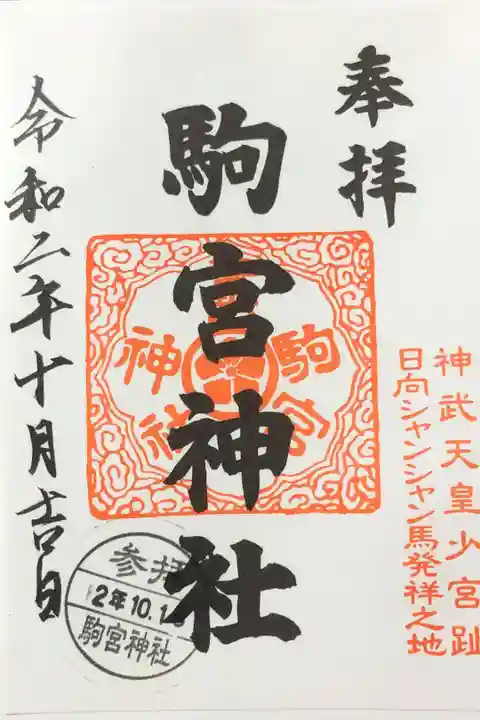 奉拝
駒宮神社
神武天皇少宮趾
日向シャンシャン馬発祥之地
駒宮
神社
令和二年十月吉日
参拝
2年10.1
駒宮神社